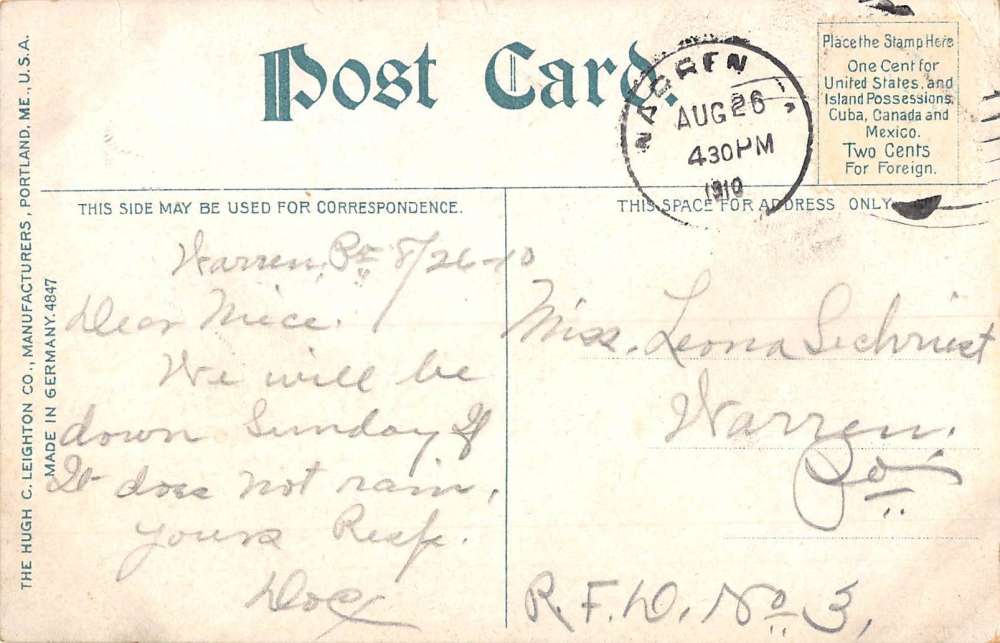 Post Card.
WARREN
AUG 26
4 30 PM
1910
Place the Stamp Here
One Cent for
United States, and
Island Possessions,
Cuba, Canada and
Mexico.
Two Cents
For Foreign.
THIS SIDE MAY BE USED FOR CORRESPONDENCE.
THIS SPACE FOR ADDRESS ONLY
THE HUGH C. LEIGHTON CO., MANUFACTURERS, PORTLAND, ME., U.S.A.
MADE IN GERMANY. 4847
Warren, Pa 8/26-10
Dear Niece.
We will be
down Sunday If
It does not rain,
yours Resp.
Doc
Miss. Leona Sechriest
Warren.
Pa
R.F.D. No 3,